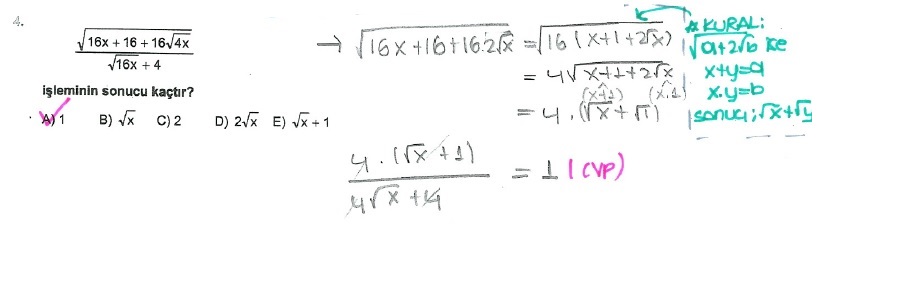 4.
√(16x + 16 + 16√4x)
√16x + 4
işleminin sonucu kaçtır?
A) 1 B) √x C) 2 D) 2√x E) √x + 1
→ √(16x+16+16.2√x) = √(16(x+1+2√x))
= 4√(x+1+2√x)
(x+1) (x.1)
= 4.(√x+√1)
4.(√x+1)
4√x+4
= 1 (CVP)
* KURAL:
√(a+2√b) ise
x+y=a
x.y=b
sonuç; √x+√y